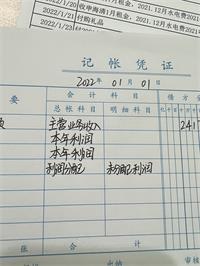 2022/1/20 收申海清1月租金, 2021.12月水电费2021
2022/1/21 付购礼品
2022/1/23
记帐凭证
2022年 01月 01日
会计科目
借方金
要 总帐科目 明细科目
主营业务收入 241
本年利润
本年利润
利润分配 未分配利润
张 合计
审核